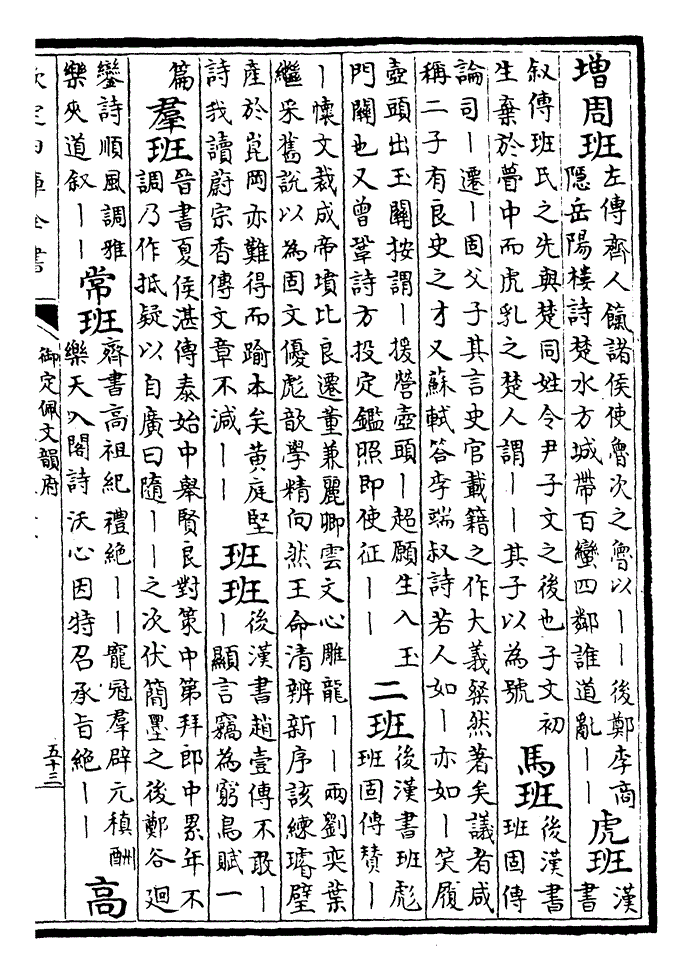 增周班
左傳齊人餼諸侯使魯次之魯以丨丨後鄭李商
隱岳陽樓詩楚水方城帶百蠻四鄰誰道亂丨丨
虎班
漢
書
叙傳班氏之先與楚同姓令尹子文之後也子文初
生棄於瞢中而虎乳之楚人謂丨丨其子以為號
馬班
後漢書
班固傳
論司丨遷丨固父子其言史官載籍之作大義粲然著矣議者咸
稱二子有良史之才又蘇軾答李端叔詩若人如丨亦如丨笑履
壺頭出玉關按謂丨援營壺頭丨超願生入玉
門關也又曾鞏詩方投定鑑照即使征丨丨
二班
後漢書班彪
班固傳贊丨
丨懷文裁成帝墳比良遷董兼麗卿雲文心雕龍丨丨兩劉奕葉
繼采舊說以為固文優彪歆學精向然王命清辨新序該練璿璧
產於崑岡亦難得而踰本矣黃庭堅
詩我讀蔚宗香傳文章不減丨丨
班班
後漢書趙壹傳不敢丨
丨顯言竊為窮鳥賦一
篇
羣班
晉書夏侯湛傳泰始中舉賢良對策中第拜郎中累年不
調乃作抵疑以自廣曰隨丨丨之次伏簡墨之後鄭谷廻
鑾詩順風調雅
樂夾道叙丨丨
常班
齊書高祖紀禮絶丨丨寵冠羣辟元稹酬
樂天入閣詩沃心因特召承旨絶丨丨
高
欽定四庫全書
御定佩文韻府
五十三